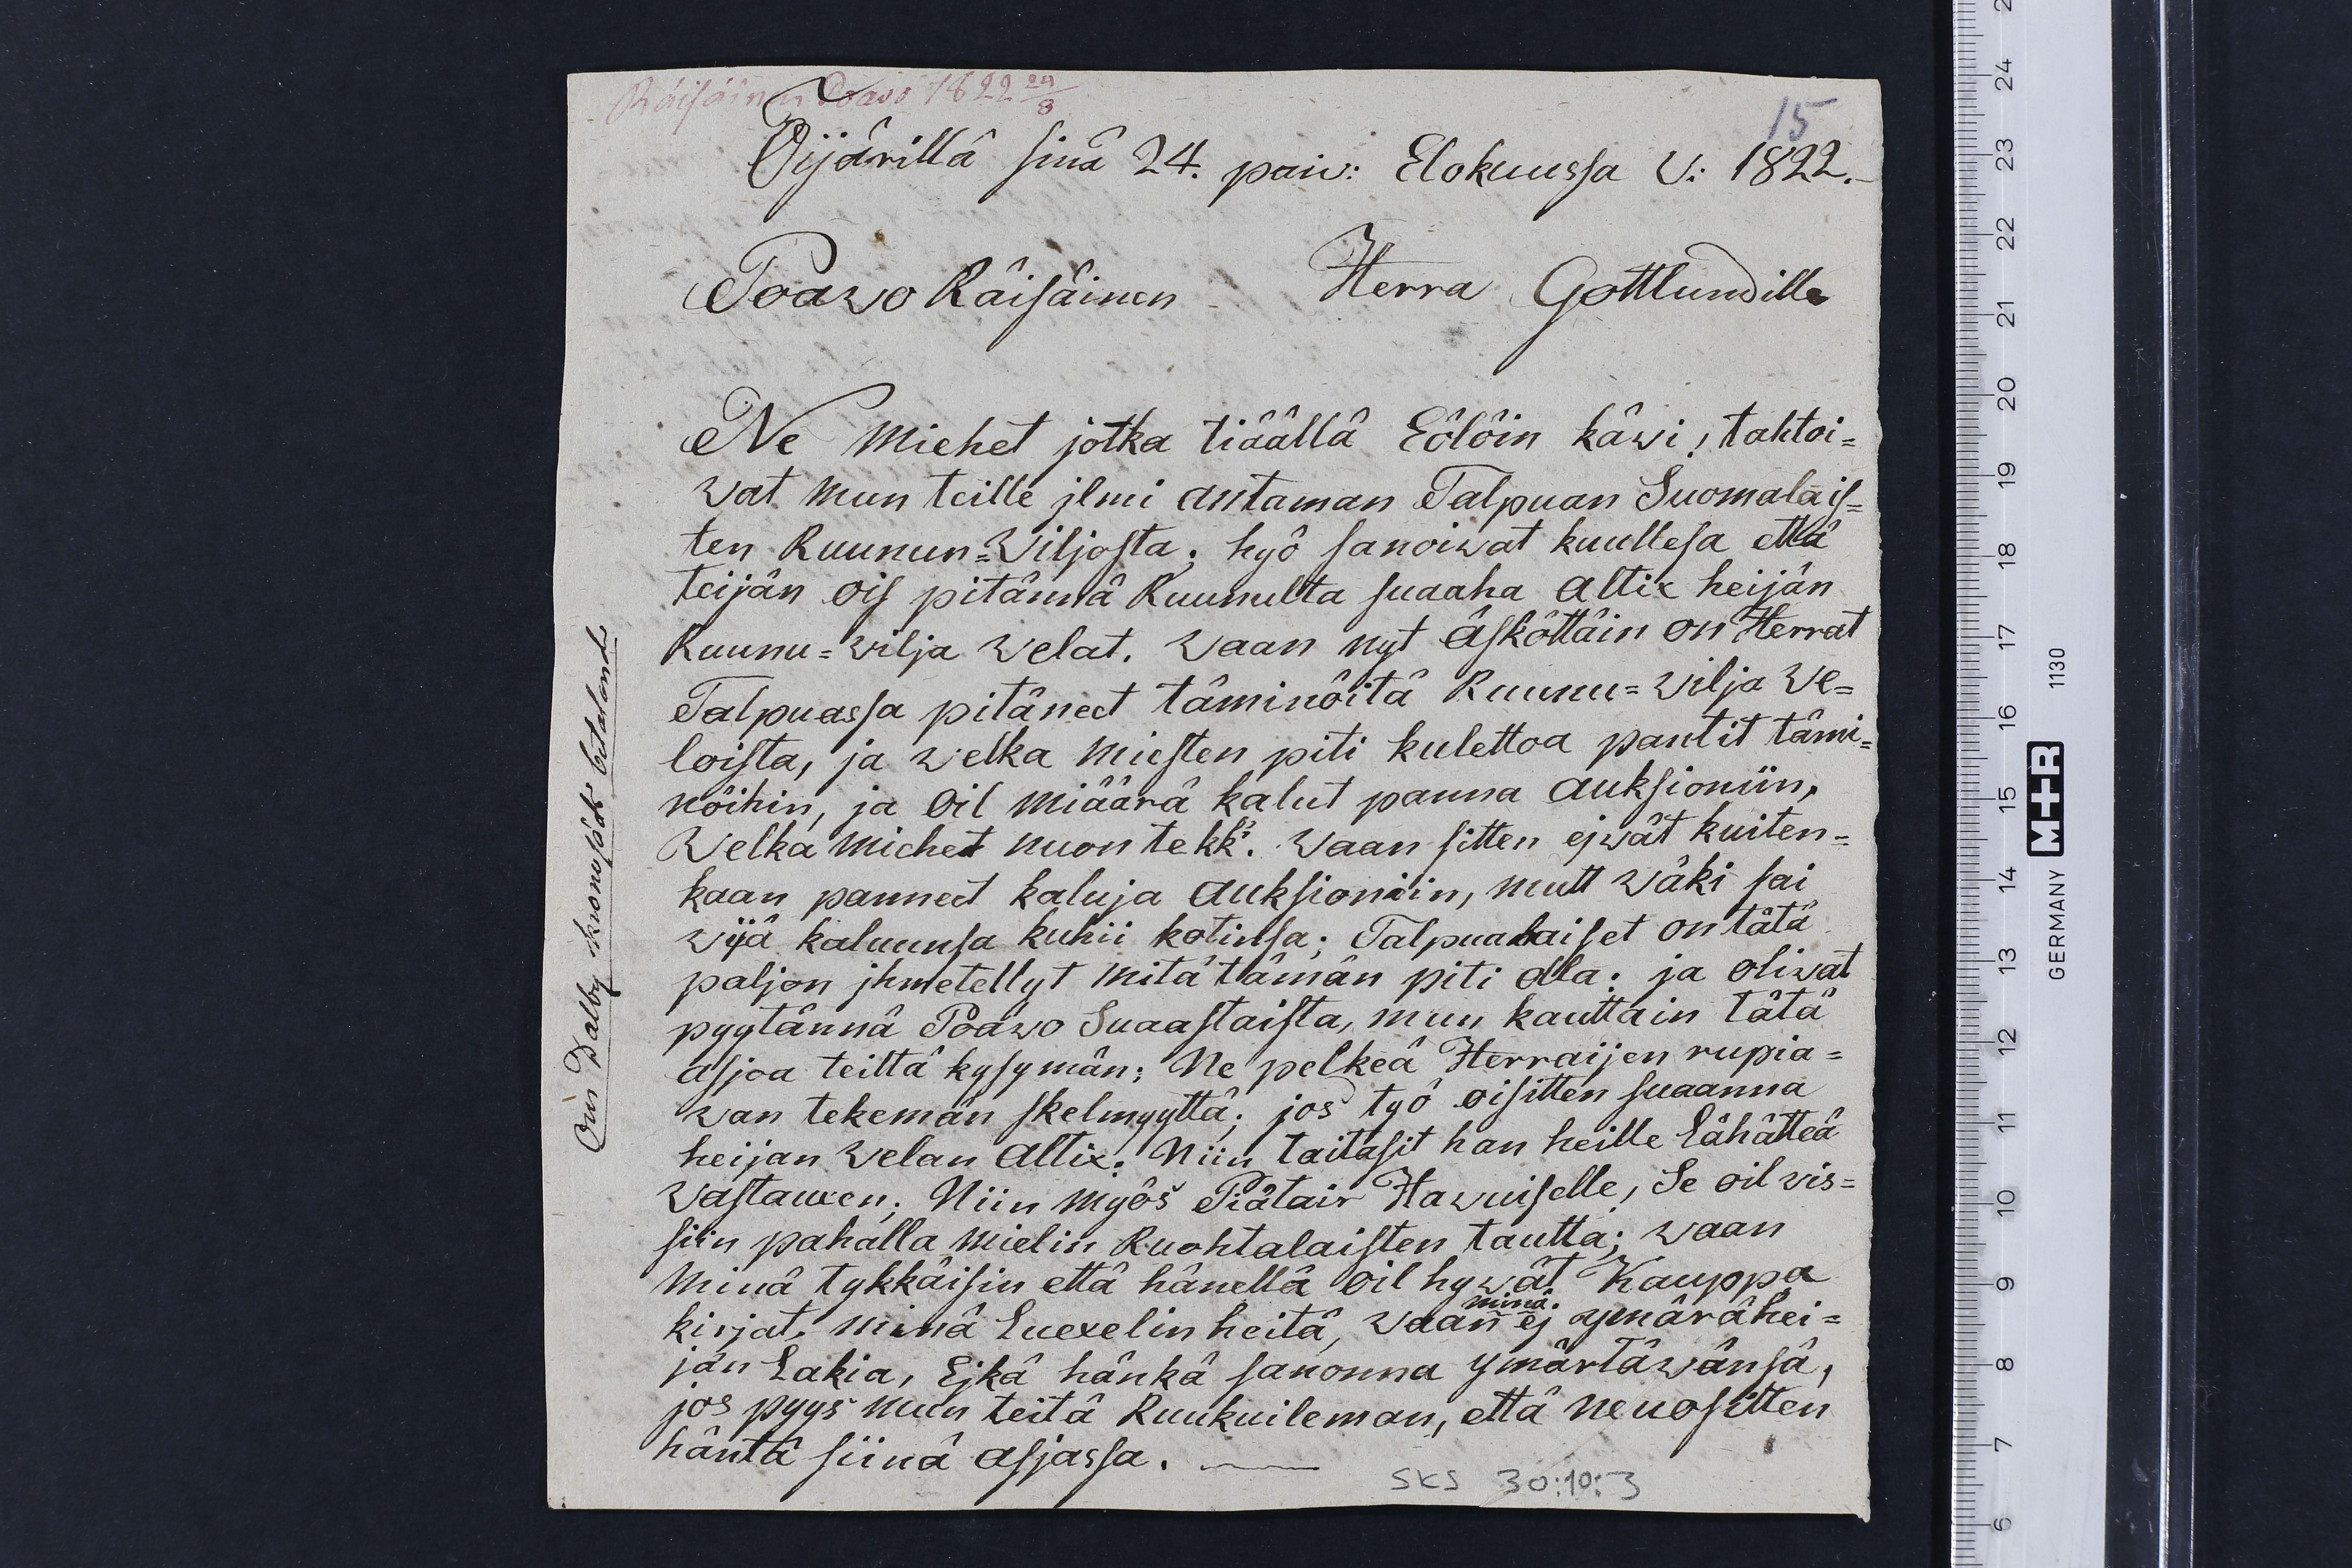 Räisäinen Poavo 1822 24/8
15
Öijärillä sinä 24. päiv: Elokuussa V: 1822.-
Poavo Räisäinen Herra Gottlundille
Ne Miehet jotka tiäällä Eölöin käwi, tahtoi=
wat mun teille jlmi antaman Talpuan Suomalais=
ten Ruunun=Viljosta; hyö sanoiwat kuullesa että
teijän ois pitännä Ruunulta suaaha altix heijän
Ruunu=wilja welat. waan nyt äsköttäin on Herrat
Talpuassa pitäneet täminöitä Ruunu=wilja we=
loista, ja welka miesten piti kulettoa pantit tämi=
nöihin, ja oil miäärä kalut panna auksioniin,
Welka miehet nuon tekk. waan sitten ejwät kuiten=
kaan panneet kaluja auksioniin, mutt wäki sai
wijä kaluunsa kuhii kotinsa; Talpualaiset on tätä
paljon jhmetellyt mitä tämän piti olla: ja oliwat
pyytännä Poawo Suaastaista, mun kauttain tätä
asjoa teiltä kysymän; Ne pelkeä Herraijen rupia=
wan tekemän skelmyyttä; jos työ oisitten suaanna
heijan welan altix: Niin taitasit han heille Lähätteä
wastauxen; Niin myös Piätair Hawuiselle, Se oil wis=
siin pahalla mielin Ruohtalaisten tautta; waan
minä tykkäisin että hänellä oil hywät Kauppa
kirjat, minä Luexelin heitä, waan minä ej ymärä hei=
jän Lakia, Ejkä hänkä sanonna ymärtäwänsä,
jos pyys mun teitä Ruukuileman, että neuositten
häntä siinä asjassa.
Om Dalby kronosäds betalande
SKS 30:10:3
6 7 8 9 10 11 12 13 14 15 16 17 18 19 20 21 22 23 24
GERMANY M+R 1130